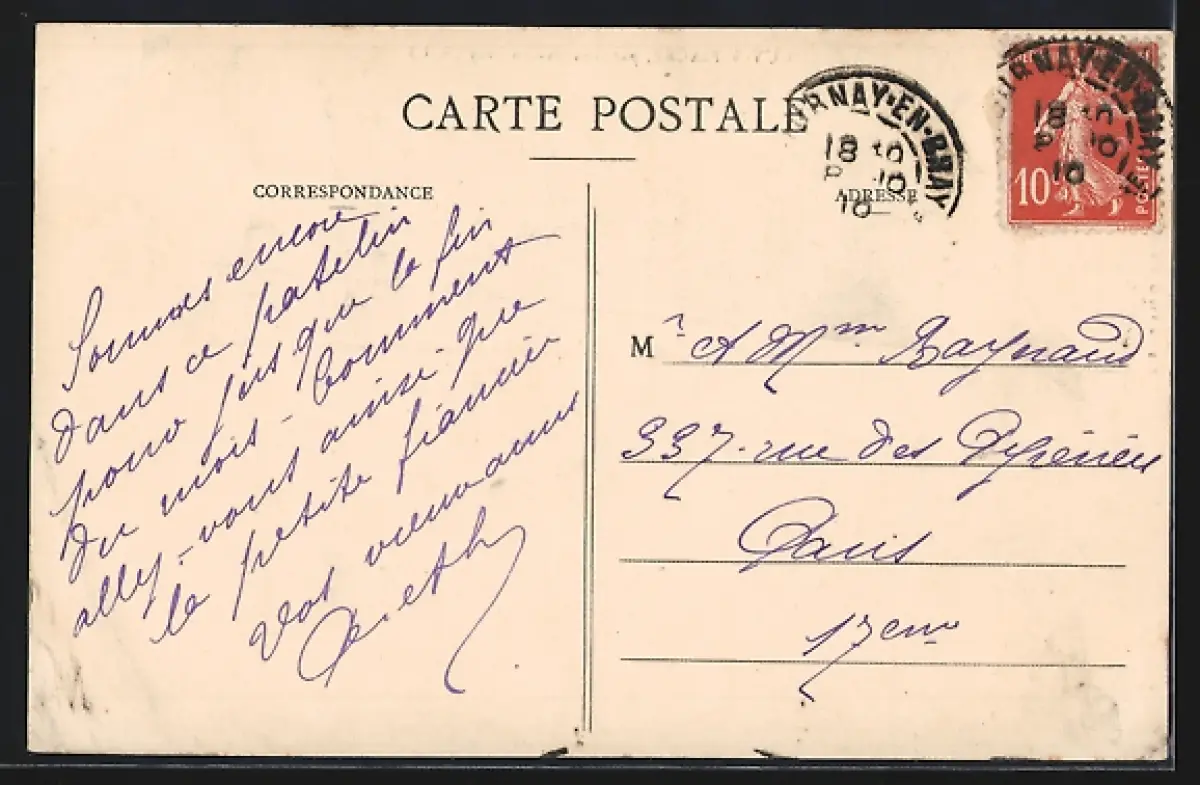 CARTE POSTALE
CORRESPONDANCE
Sommes encore
dans ce patelin
pour jusque la fin
du mois - Comment
allez-vous ainsi que
la petite fiancée
Vos vieux amis
URNAY-EN-BRAY
18
10
10
ADRESSE
URNAY-EN-BRAY
18
10
10
10
POSTES
M r et Mme Raynaud
337 rue des Pyrénées
Paris
17eme